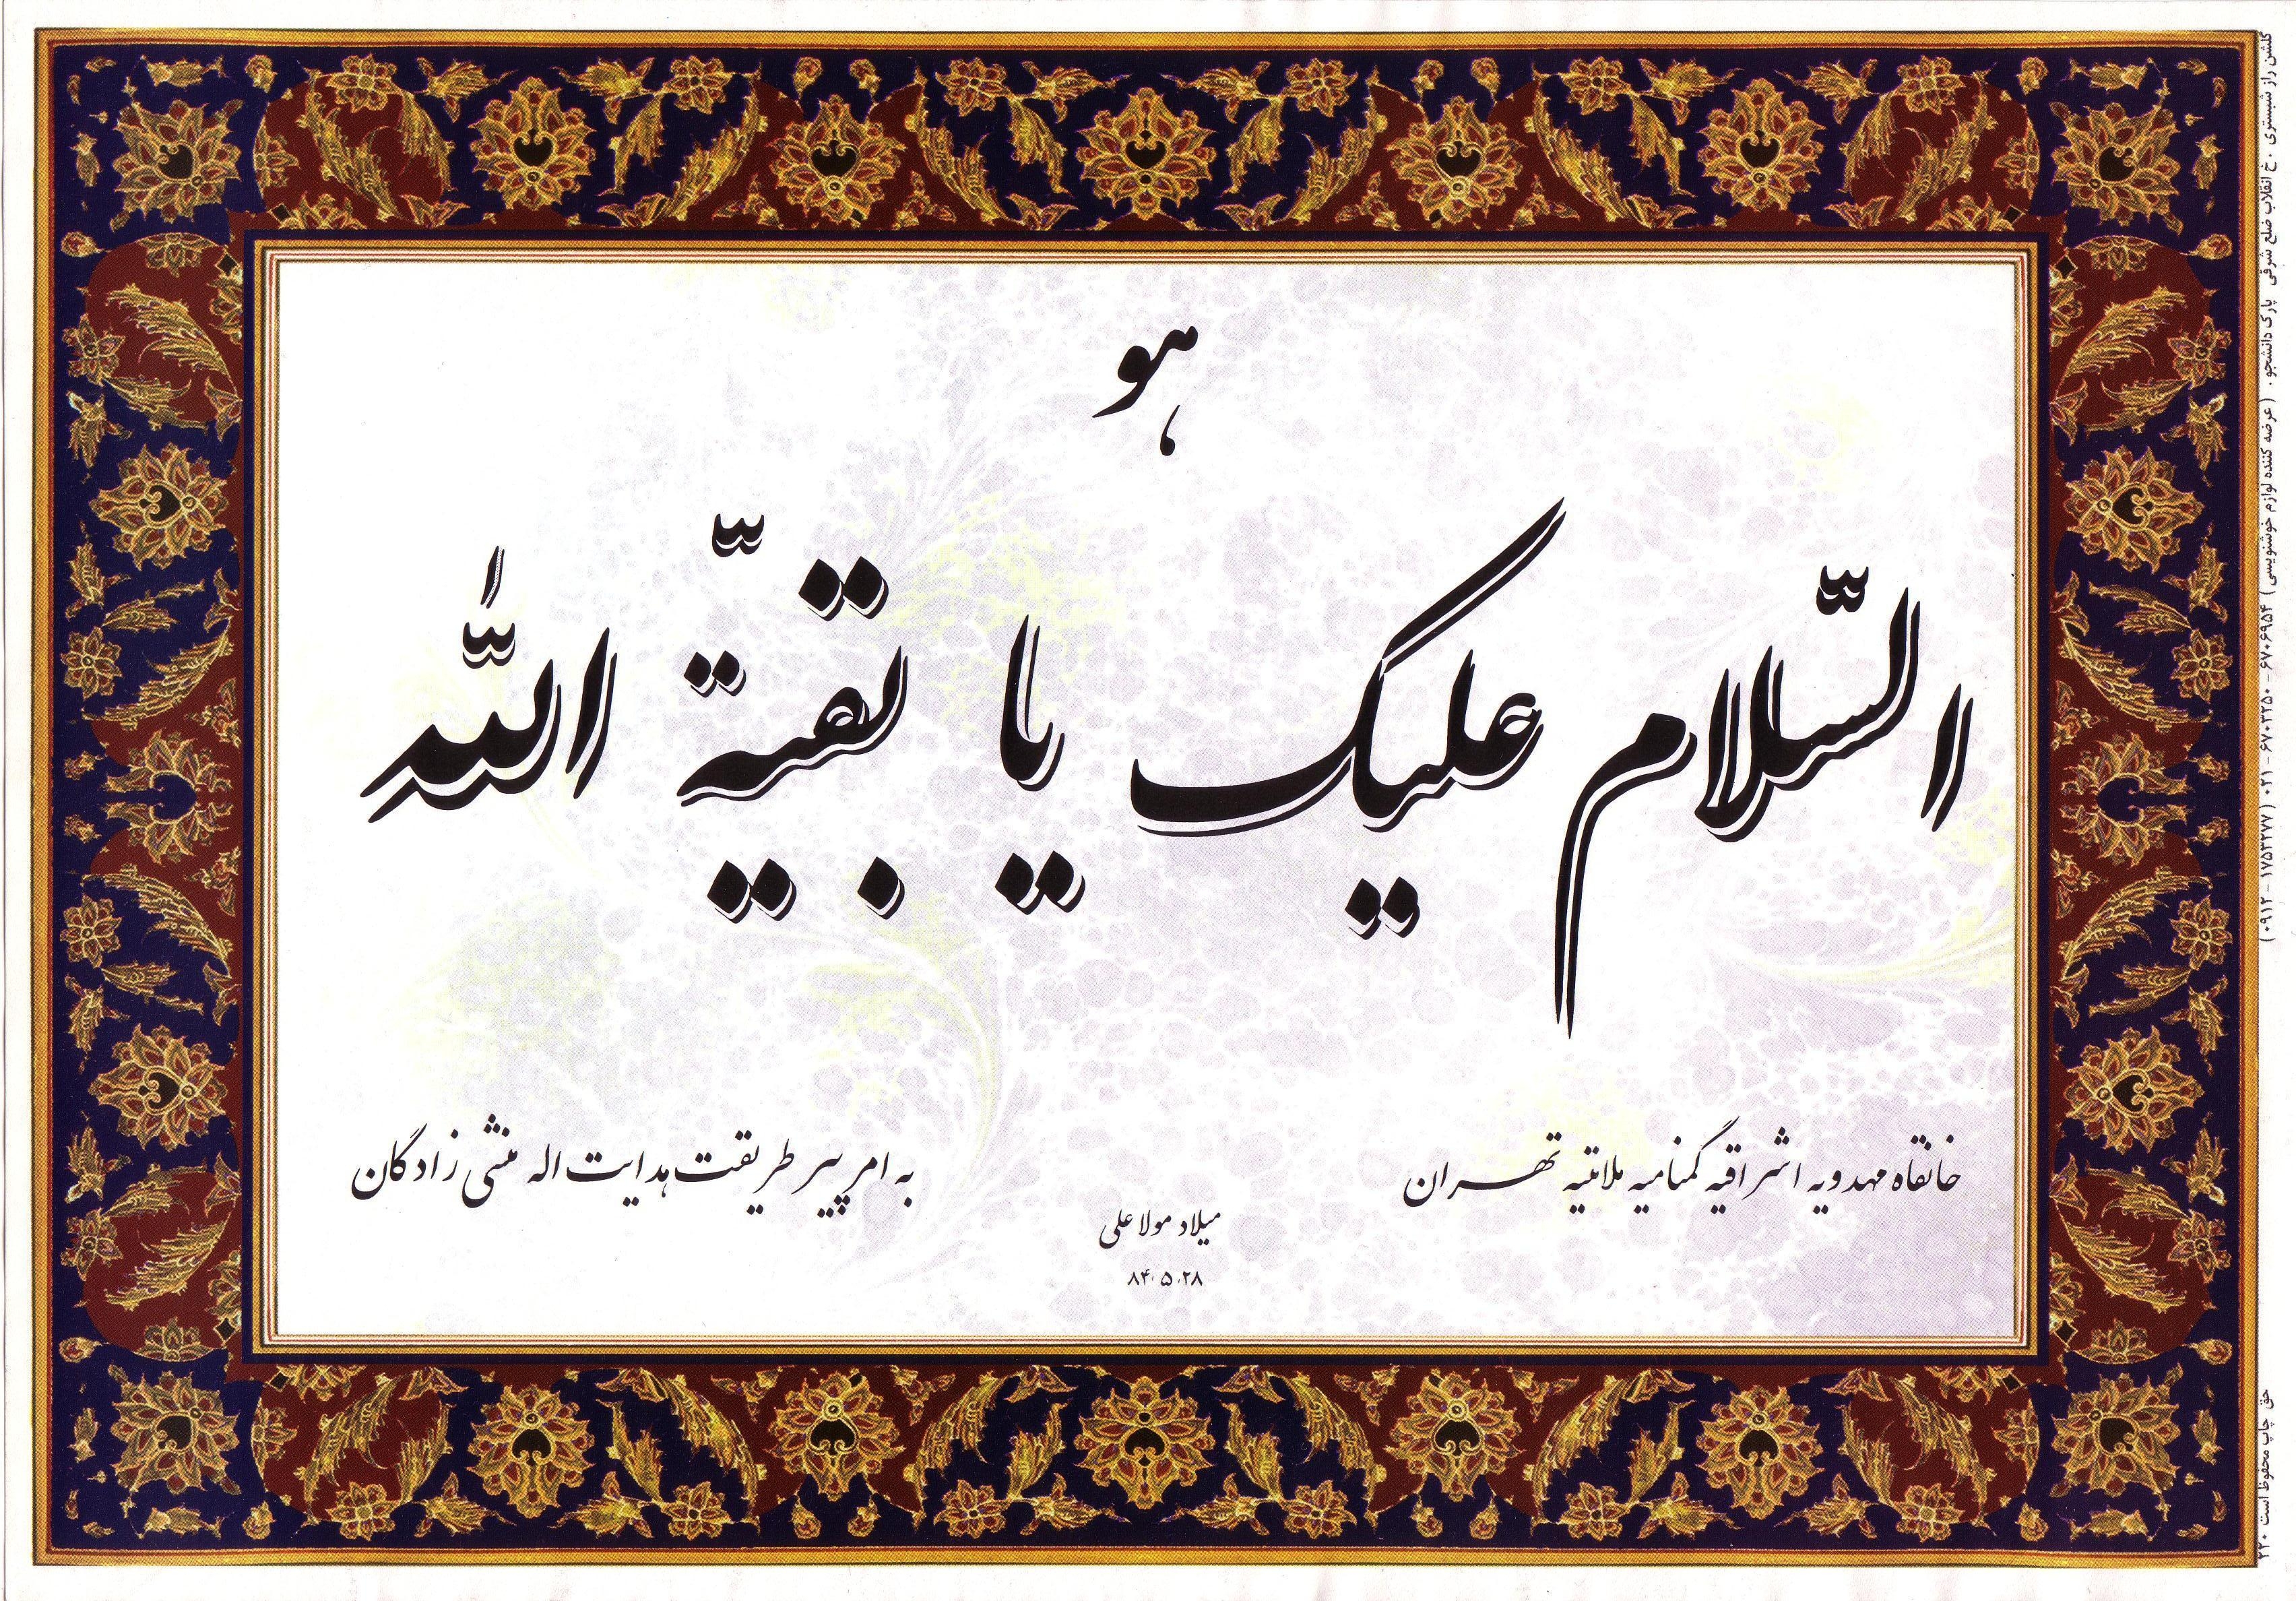 هو
السّلام علیک یا بقیّة اللّٰه
خانقاه مهدویه اشراقیه گمنامیه ملامتیه تهران
به امر پیر طریقت هدایت اله منشی زادگان
میلاد مولا علی
۸۴،۵،۲۸
گلشن راز شبستری . خ انقلاب ضلع شرقی پارک دانشجو . (عرضه کننده لوازم خوشنویسی) ۶۷۰۶۹۵۴ - ۶۷۰۳۲۵۰ - ۰۲۱ (۰۹۱۲ - ۱۷۵۳۲۷۷)
حق چاپ محفوظ است ۲۲۰